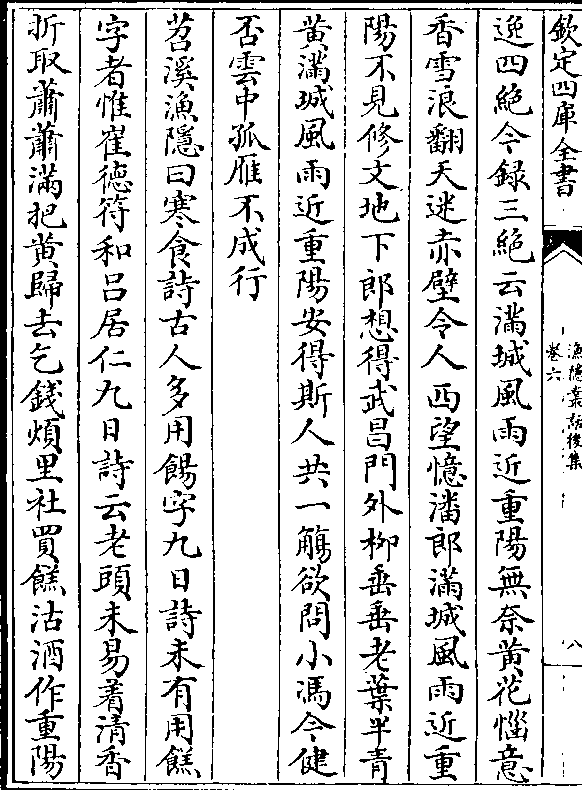 欽定四庫全書
漁隱叢話後集
卷六
八
逸四絶今録三絶云滿城風雨近重陽無奈黄花惱意
香雪浪翻天迷赤壁令人西望憶潘郎滿城風雨近重
陽不見修文地下郎想得武昌門外柳垂垂老葉半青
黄滿城風雨近重陽安得斯人共一觴欲問小馮今健
否雲中孤雁不成行
苕溪漁隱曰寒食詩古人多用餳字九日詩未有用餻
字者惟崔徳符和吕居仁九日詩云老頭未易着清香
折取蕭蕭滿把黄歸去乞錢煩里社買餻沽酒作重陽